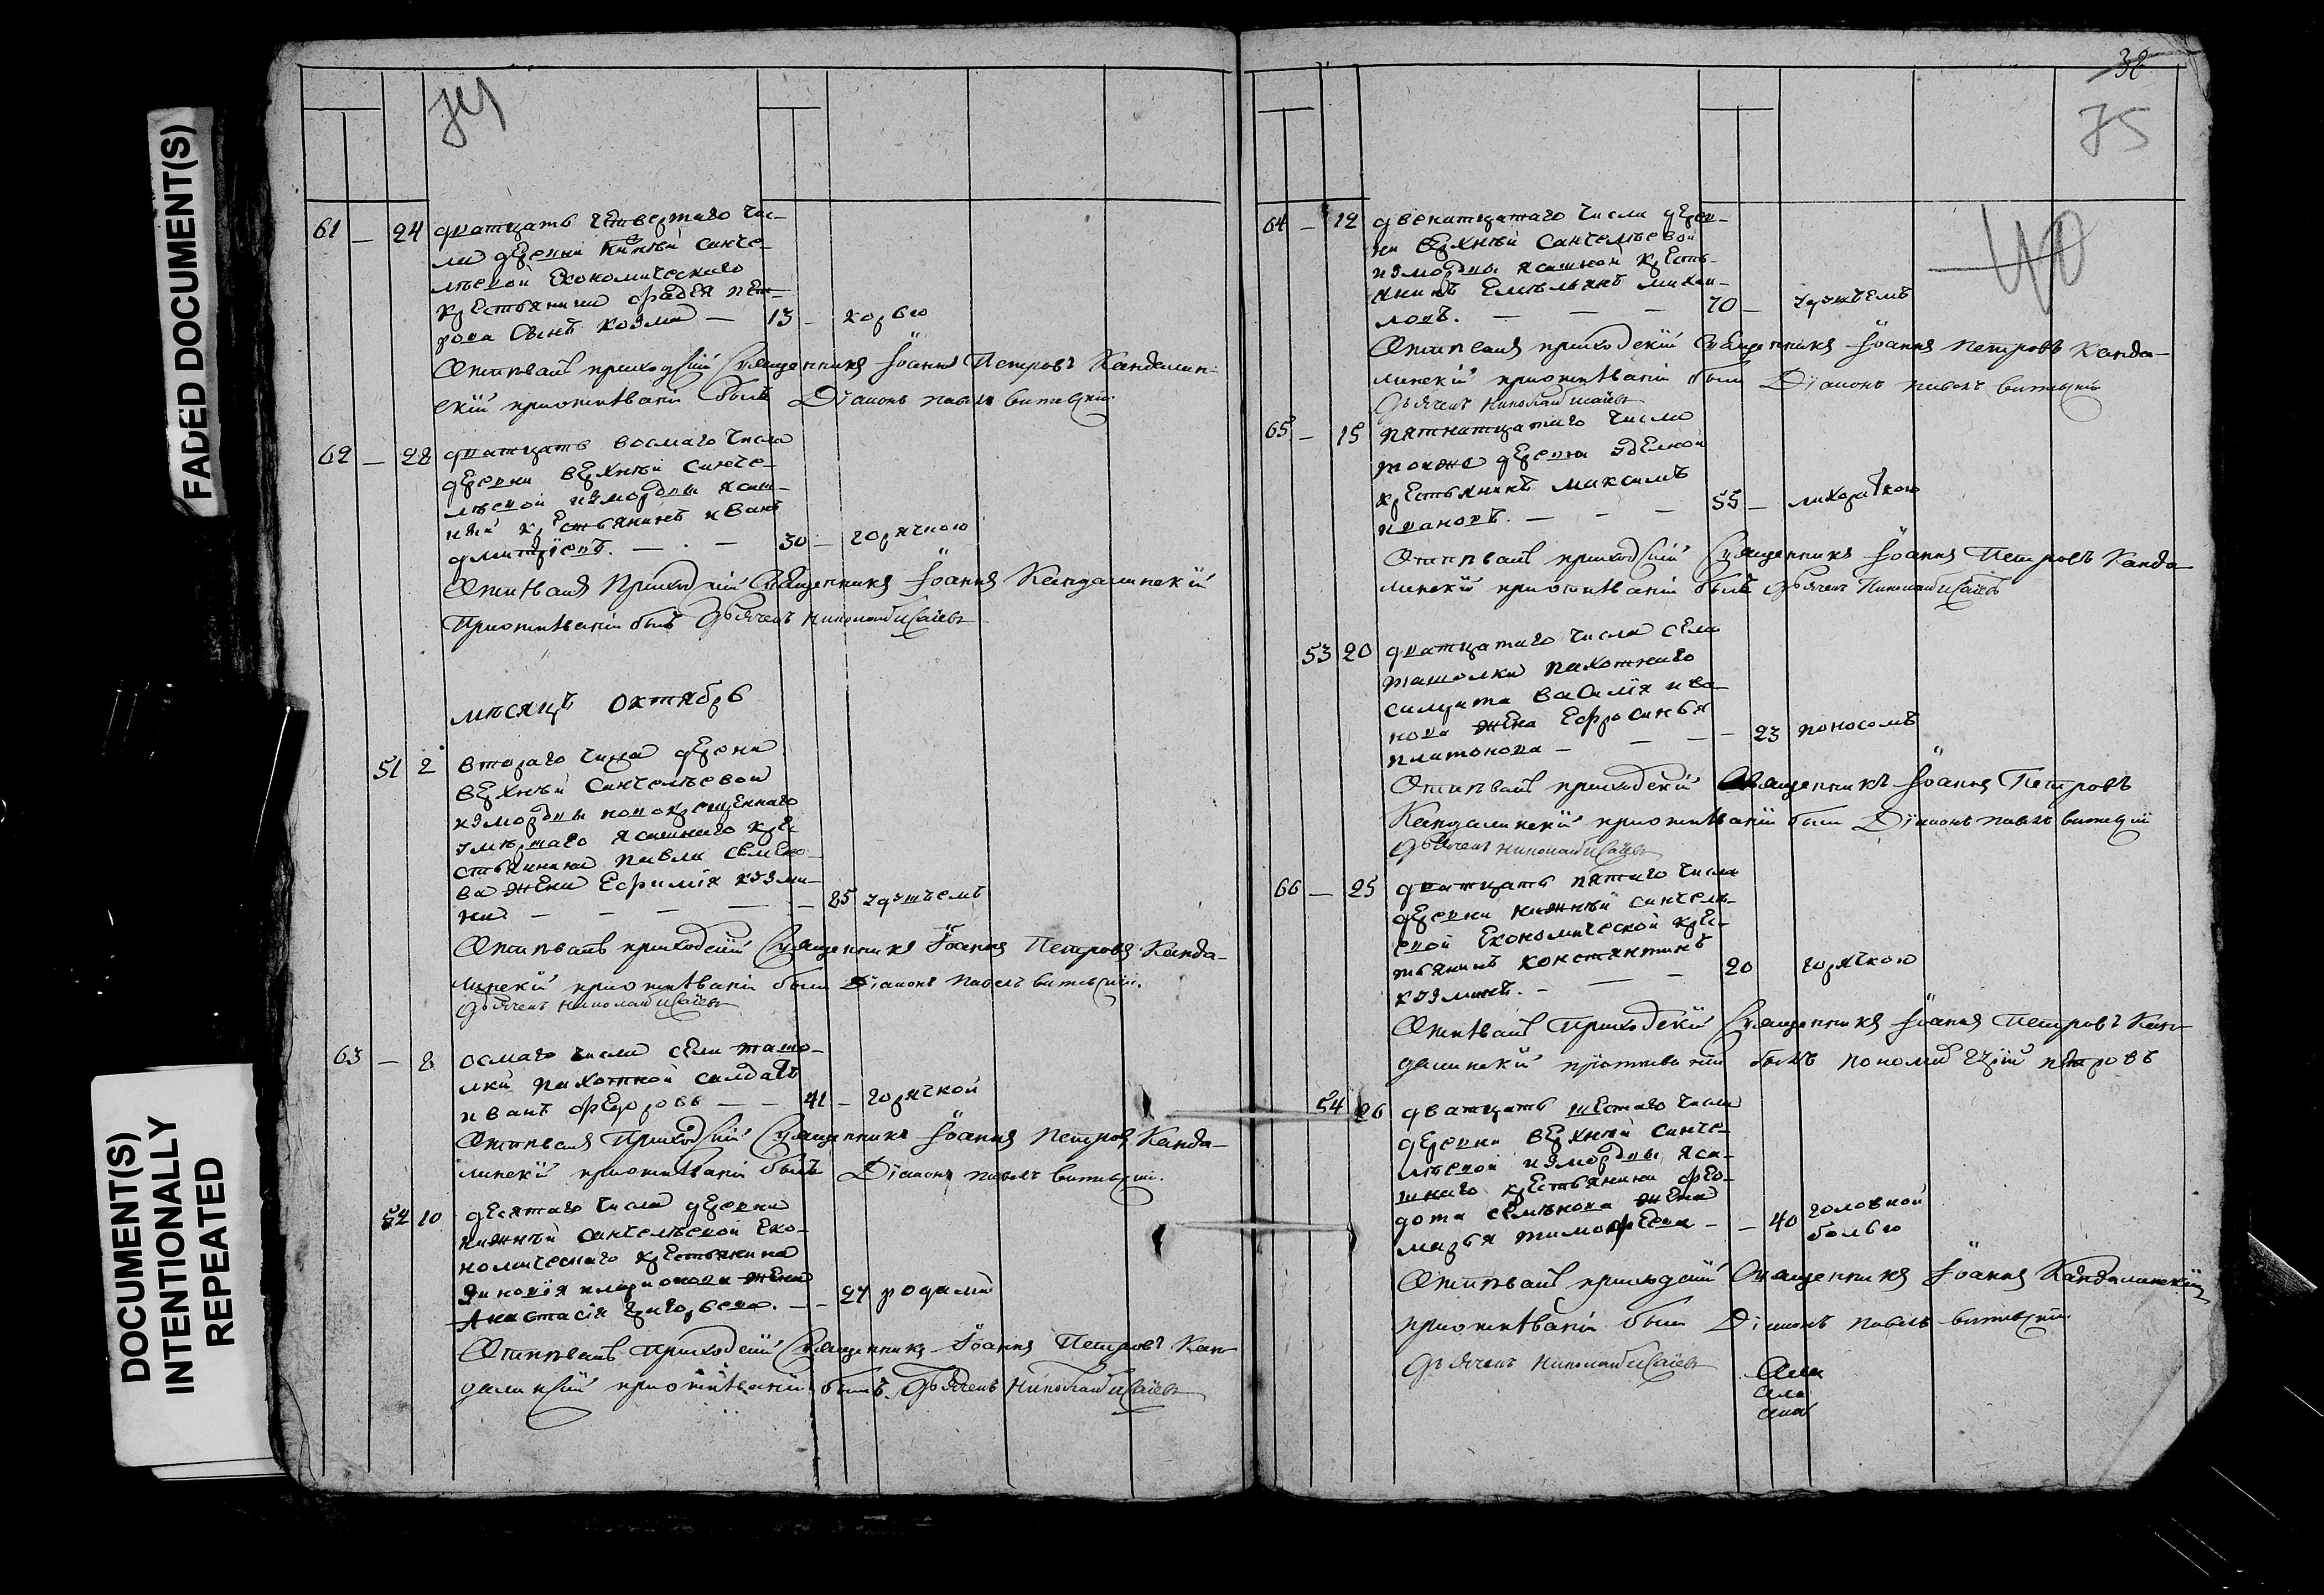 FADED DOCUMENT(S)
DOCUMENT(S)
INTENTIONALLY
REPEATED
74
61 — 24 дватцать четвертаго чис-
ла деревни нижнѣй санче-
лѣевой економическаго
крестьянина фадея пет-
рова сынъ козма — 13 — корью
Отпѣвалъ приходскій священникъ Іоаннъ Петровъ Кандалин-
скій приотпѣваніи былъ Діаконъ павелъ
62 — 28 дватцать восмаго числа
деревни верхнѣй санче-
лѣевой измордвы ясаш-
ный крестьянинъ иванъ
дмитріевъ. — . — 30 — горячкою
Отпѣвалъ Приходскій священникъ Іоаннъ Кандалинскій
Приотпѣваніи былъ Дьячекъ николай исаевъ
мѣсяцъ октябрь
51 2 втораго числа деревни
верхнѣй санчелѣевой
измордвы новокрещеннаго
умершаго ясашнаго кре-
стьянина павла семено-
ва жена ефимія козми-
на — — — — — 85 удушьемъ
Отпѣвалъ приходскій священникъ Іоаннъ Петровъ Канда-
линскій приотпѣваніи были Діаконъ павелъ
Дьячекъ николай исаевъ
63 — 8 осмаго числа села ташо-
лки пахотной салдатъ
иванъ федоровъ — — 41 — горячкой
Отпѣвалъ Приходскій священникъ Іоаннъ петровъ Канда-
линскій приотпѣваніи былъ Діаконъ павелъ
52 10 десятаго числа деревни
нижнѣй санчелѣевой еко-
номическаго крестьянина
зиновія иларионова жена
Анастасія григорьева. — — 27 родами
Отпѣвалъ приходскій священникъ Іоаннъ Петровъ Кан-
далинскій приотпѣваніи былъ Дьячекъ Николай исаевъ
38
75
40
64 — 12 двенатцатаго числа дерев-
ни верхнѣй санчелѣевой
измордвы ясашной кресть-
янинъ емельянъ михаи-
ловъ. — — — 70 — удушьемъ
Отпѣвалъ приходскій священникъ Іоаннъ петровъ Канда-
линскій приотпѣваніи были Діаконъ павелъ
Дьячекъ николай исаевъ
65 — 15 пятнатцатаго числа
тойже деревни
крестьянинъ максимъ
ивановъ. — — — 55 — лихораткою
Отпѣвалъ приходскій священникъ Іоаннъ Петровъ Канда-
линскій приотпѣваніи былъ Дьячекъ Николай исаевъ
53 20 дватцатаго числа села
ташолки пахотнаго
салдата василія ива-
нова жена ефросинья
платонова — — — — 23 поносомъ
Отпѣвалъ приходскій священникъ Іоаннъ Петровъ
Кандалинскій приотпѣваніи были Діаконъ павелъ
Дьячекъ николай исаевъ
66 — 25 дватцать пятаго числа
деревни нижнѣй санчелѣ-
евой економической крес-
тьянинъ константинъ
козминъ. — — — 20 горячкою
Отпѣвалъ Приходскій священникъ Іоаннъ Петровъ Кан-
далинскій приотпѣваніи былъ пономарь петровъ
54 26 дватцать шестаго числа
деревни верхнѣй санче-
лѣевой измордвы яса-
шнаго крестьянина фео-
дота семенова жена
марья тимофеева — — 40 головной
болью
Отпѣвалъ приходскій священникъ Іоаннъ Кандалинскій
приотпѣваніи были Діаконъ павелъ
Дьячекъ Николай исаевъ